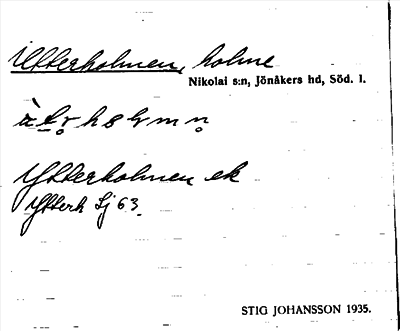 Ytterholmen, holme
Nikolai s:n, Jönåkers hd, Söd. l.
Ytterholmen ek
Ytterh Lj 63
STIG JOHANSSON 1935.